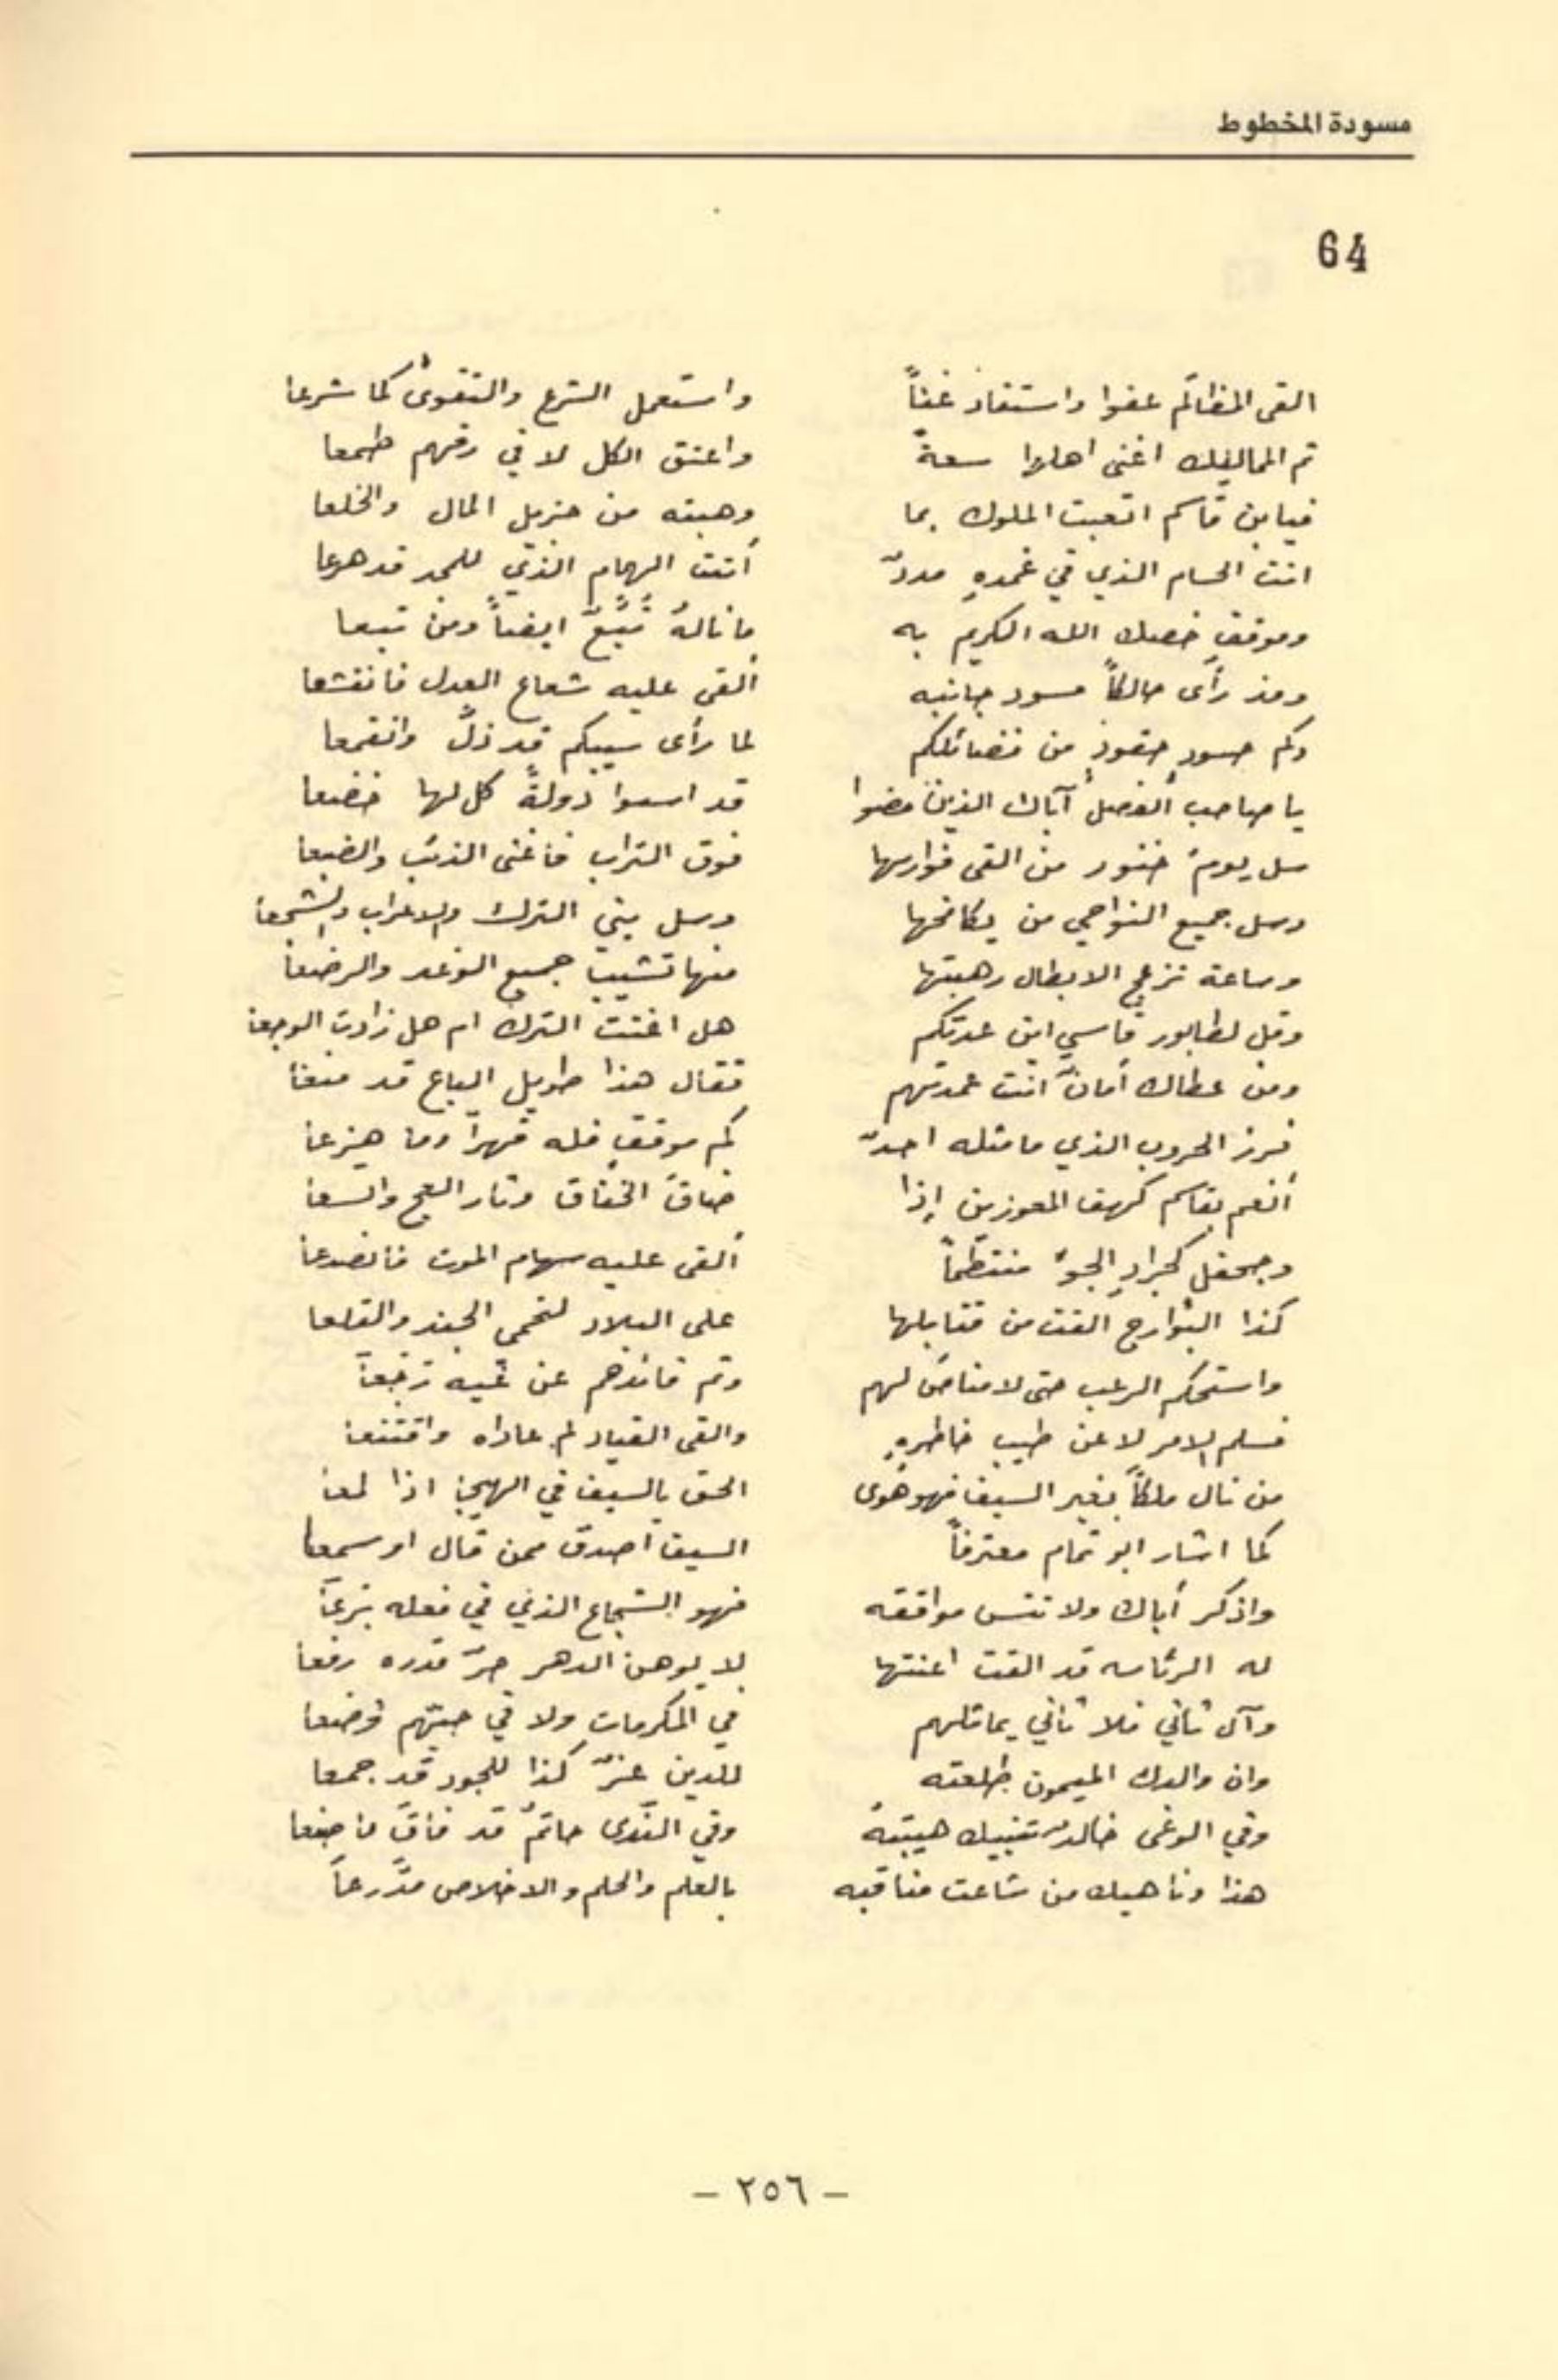 مسودة المخطوط
64
القى المظالم عفوا واستفاد غناً واستعمل الشرع والتقوى كما شرعا
ثم المماليك اغنى اهلها سعةً واعتق الكل لا في رقهم طمعا
فيا بن قاسم اتعبت الملوك بما وهبته من جزيل المال والخلعا
انت الحسام الذي في غمدهِ مددٌ أنت الهمام الذي للمجد قد هرعا
وموقفٍ خصك الله الكريم به ما نالهُ تُبَّعٌ ايضاً ومن تبعا
ومذ رأى حالكاً مسود جانبه ألقى عليه شعاع العدل فانقشعا
وكم حسودٍ حقودٍ من فضائلكم لما رأى سيبكم قد ذلَّ وانقمعا
يا صاحب الفصل آباك الذين مضوا قد اسسوا دولةً كل لها خضعا
سل يوم خنور من القى فوارسها فوق التراب فاغنى الذئب والضبعا
وسل جميع النواحي من يكافحها وسل بني الترك والاعراب والشجعا
وساعة تزعج الابطال رهبتها منها تشيب جميع الوغد والرضعا
وقل لطابور قاسي اين عدتكم هل اغنت الترك ام هل زادت الوجعا
ومن عطاك أمانً انت عمدتهم فقال هذا طويل الباع قد منعا
فرز الحروب الذي ما مثله احدٌ كم موقفٍ فله قهراً وما هزعا
أنعم بقاسم كهف المعوزين إذا ضاق الخناق وثار العج واتسعا
وجحفل كجرادِ الجوّ منتظماً ألقى عليه سهام الموت فانصدعا
كذا البوارج القت من قنابلها على البلاد لتحمي الجند والقلعا
واستحكم الرعب حتى لا مناص لهم وثم قائدهم عن غيه رجعا
فسلم الامر لا عن طيب خاطرهِ والقى القياد لم عاداه واقتنعا
من نال ملكاً بغير السيف فهو هوى الحق بالسيف في الهيجا اذا لمعا
كما اشار ابو تمام معترفاً السيف اصدق ممن قال او سمعا
واذكر أباك ولا تنس مواقفه فهو الشجاع الذي في فعله برعا
له الرئاسه قد القت اعنتها لا يوهن الدهر حرّ قدره رفعا
وآل ثاني فلا ثاني يماثلهم في المكرمات ولا في جيبهم وضعا
وان والدك الميمون طلعته للدين عزٌّ كذا للجود قد جمعا
وفي الوغى خالدٌ تنبيك هيبتهُ وفي الندى حاتمٌ قد فاق ما صنعا
هذا وناهيك من شاعت مناقبه بالعلم والحلم والاخلاص مدَّرعاً
- ٢٥٦ -